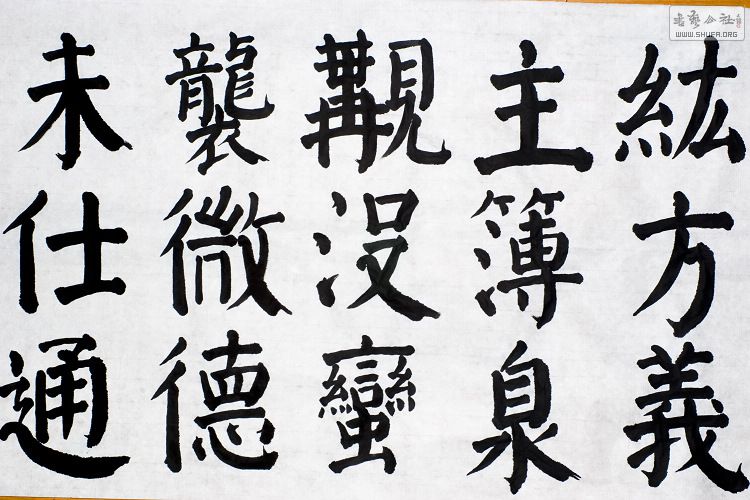 紘方義
主簿泉
覯没蠻
襲微德
未仕通
書藝公社
WWW.SHUFA.ORG